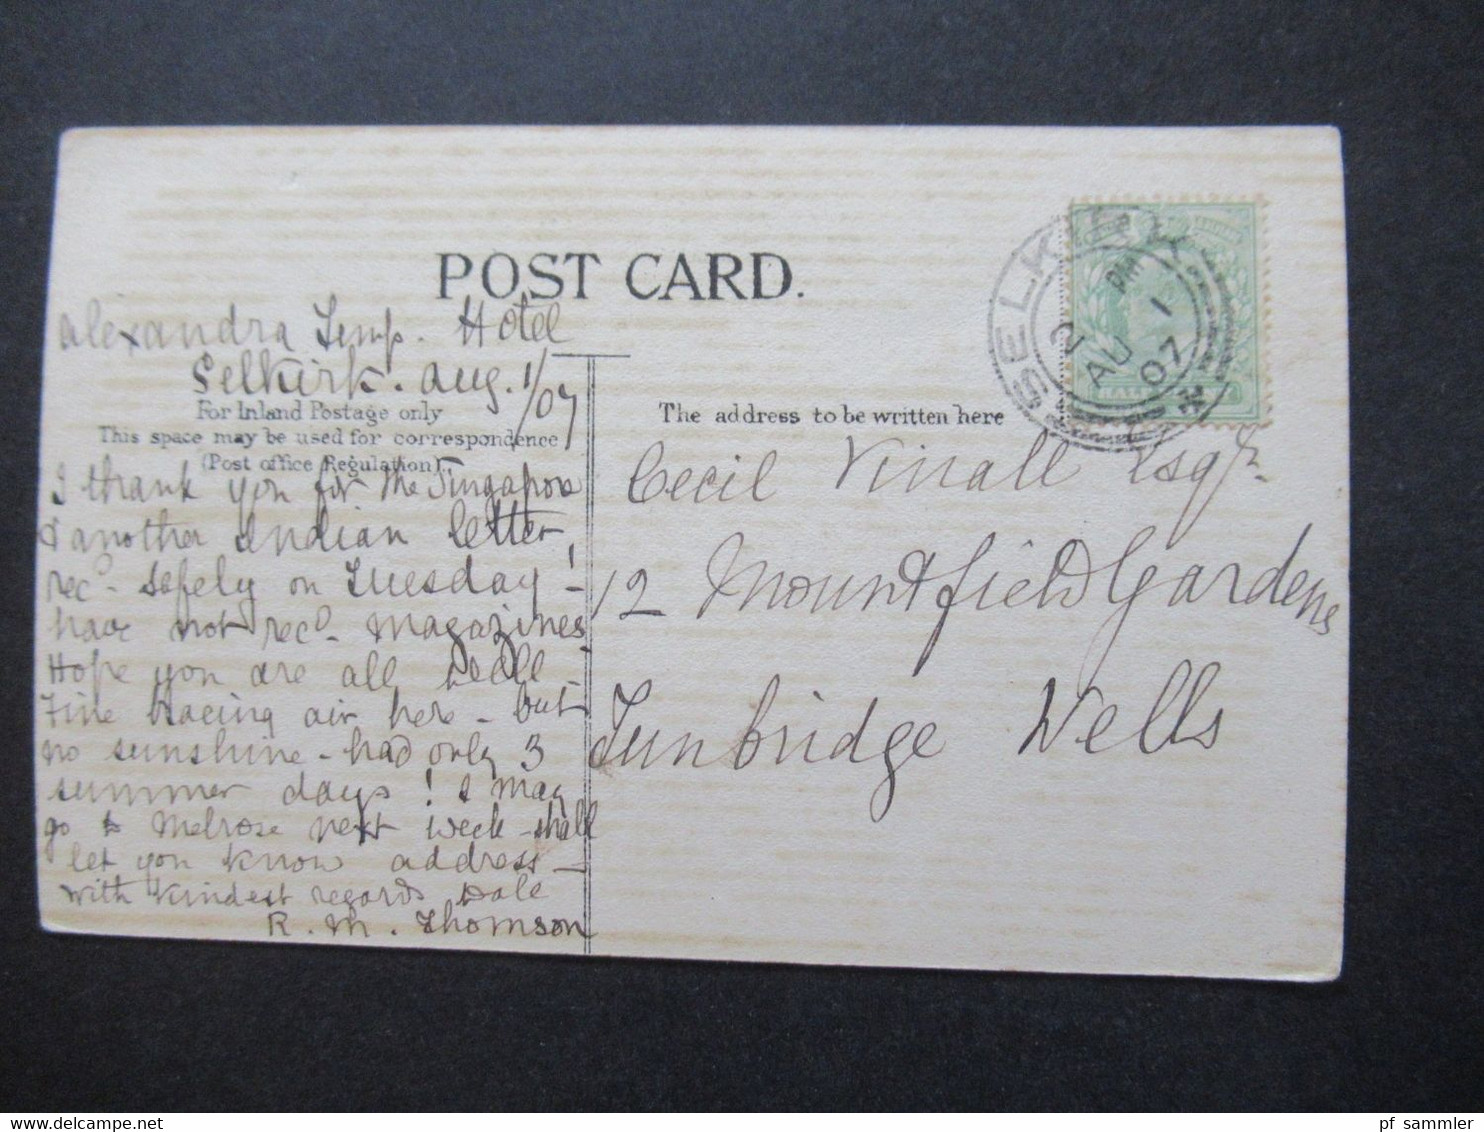 POST CARD.
Alexandra Temp. Hotel
Selkirk. Aug. 1/07
For Inland Postage only
This space may be used for correspondence
(Post office Regulation).
The address to be written here
SELKIRK
2 PM
AU 1
07
I thank you for the Singapore
& another Indian letter,
recd. safely on Tuesday! -
have not recd. magazines.
Hope you are all well -
Fine bracing air here - but
no sunshine - had only 3
summer days! I may
go to Melrose next week - shall
let you know address -
with kindest regards
R. M. Thomson
Cecil Vinall Esqr.
12 Mountfield Gardens
Tunbridge Wells
pf sammler